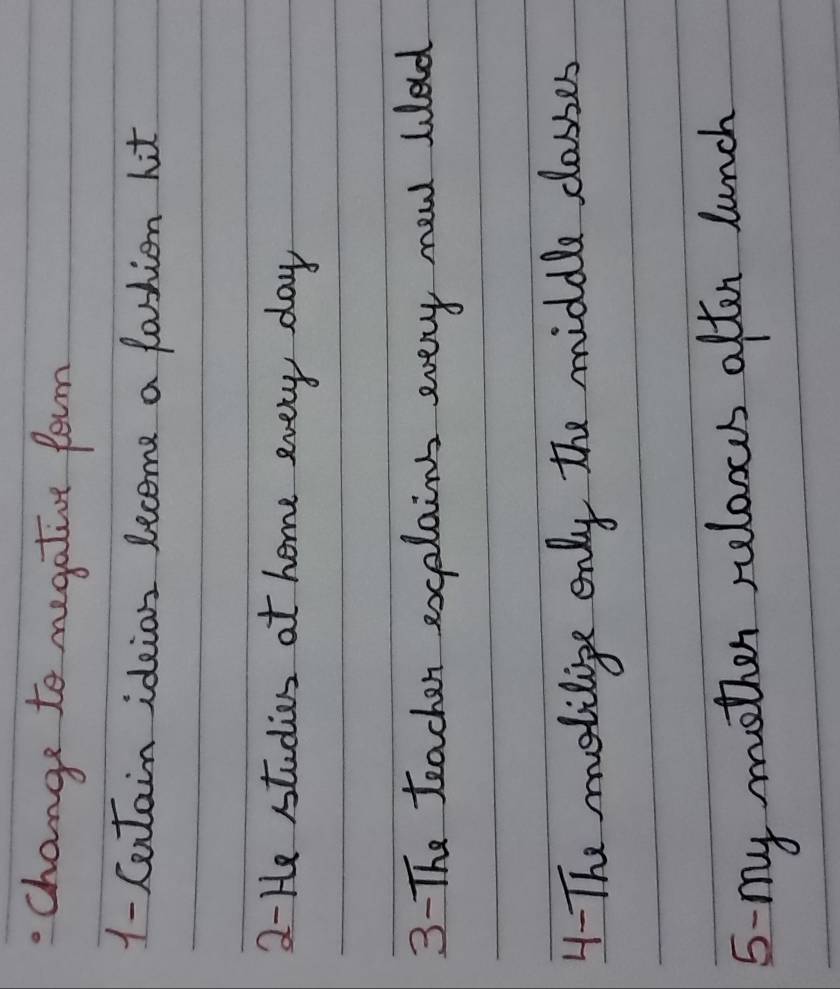 • Change to negative form
1- Certain ideias become a fashion hit
2- He studies at home every day
3- The teacher explains every new word
4- The mobilize only the middle classes
5- My mother relaxes after lunch